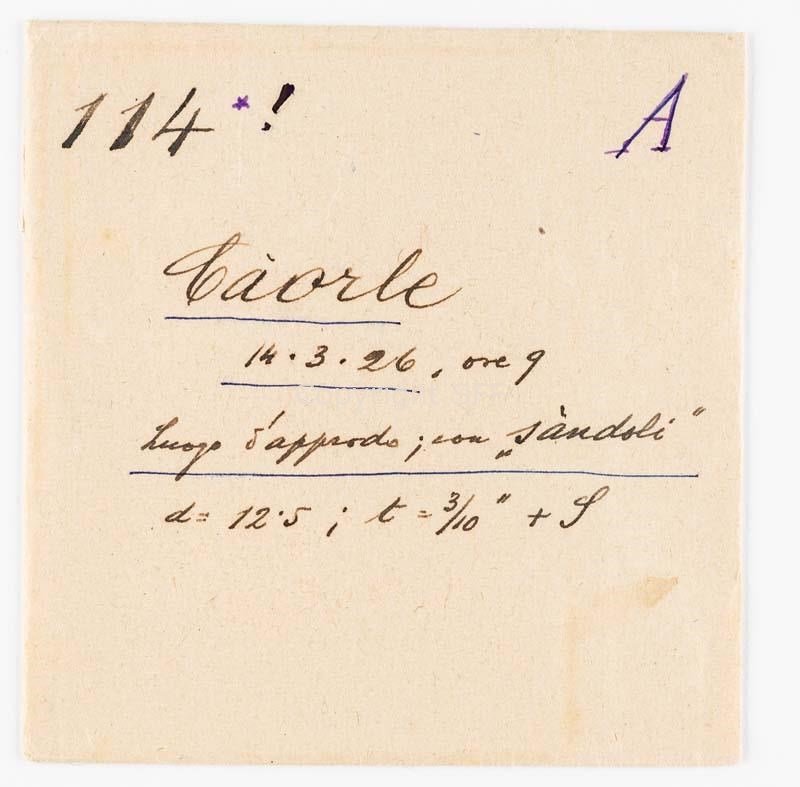 114 * ! A
Càorle
14·3·26, ore 9
Luogo d'approdo; con „sàndoli"
d= 12·5 ; t = 3/10" + S